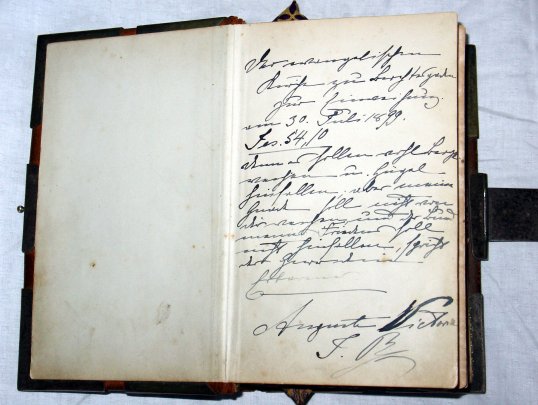 Der evangelischen
Kirche zu Berchtesgaden
zur Einweihung
am 30. Juli 1899.
Jes. 54,10
denn es sollen wohl Berge
weichen u. Hügel
hinfallen, aber meine
Gnade soll nicht von
dir weichen und der Bund
meines Friedens soll
nicht hinfallen, spricht
der Herr dein
Erbarmer
Auguste Victoria